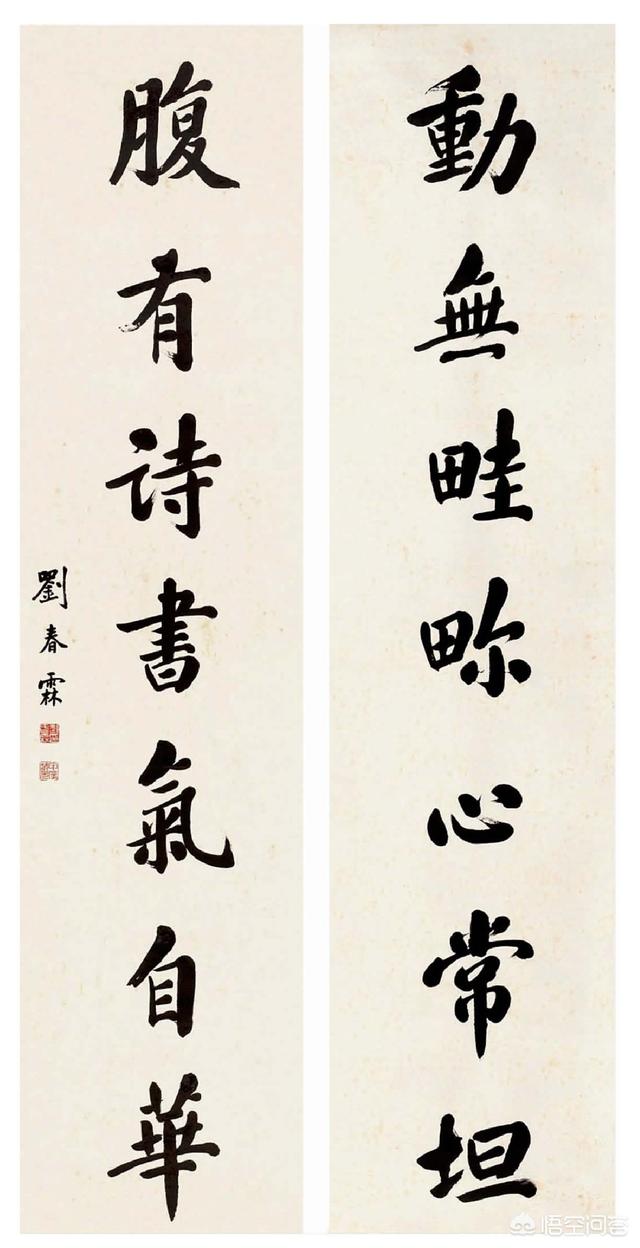 動無畦畛心常坦
腹有詩書氣自華
劉春霖
悟空问答